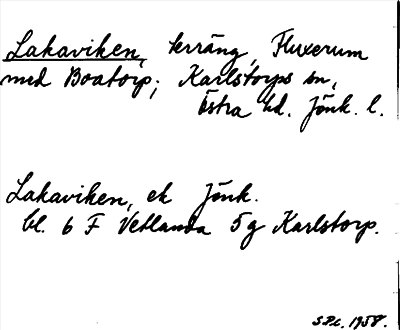 Lakaviken, terräng, Fluxerum
med Boatorp; Karlstorps sn,
Östra hd. Jönk. l.
Lakaviken, ek Jönk.
bl. 6 F Vetlanda 5g Karlstorp.
1958.